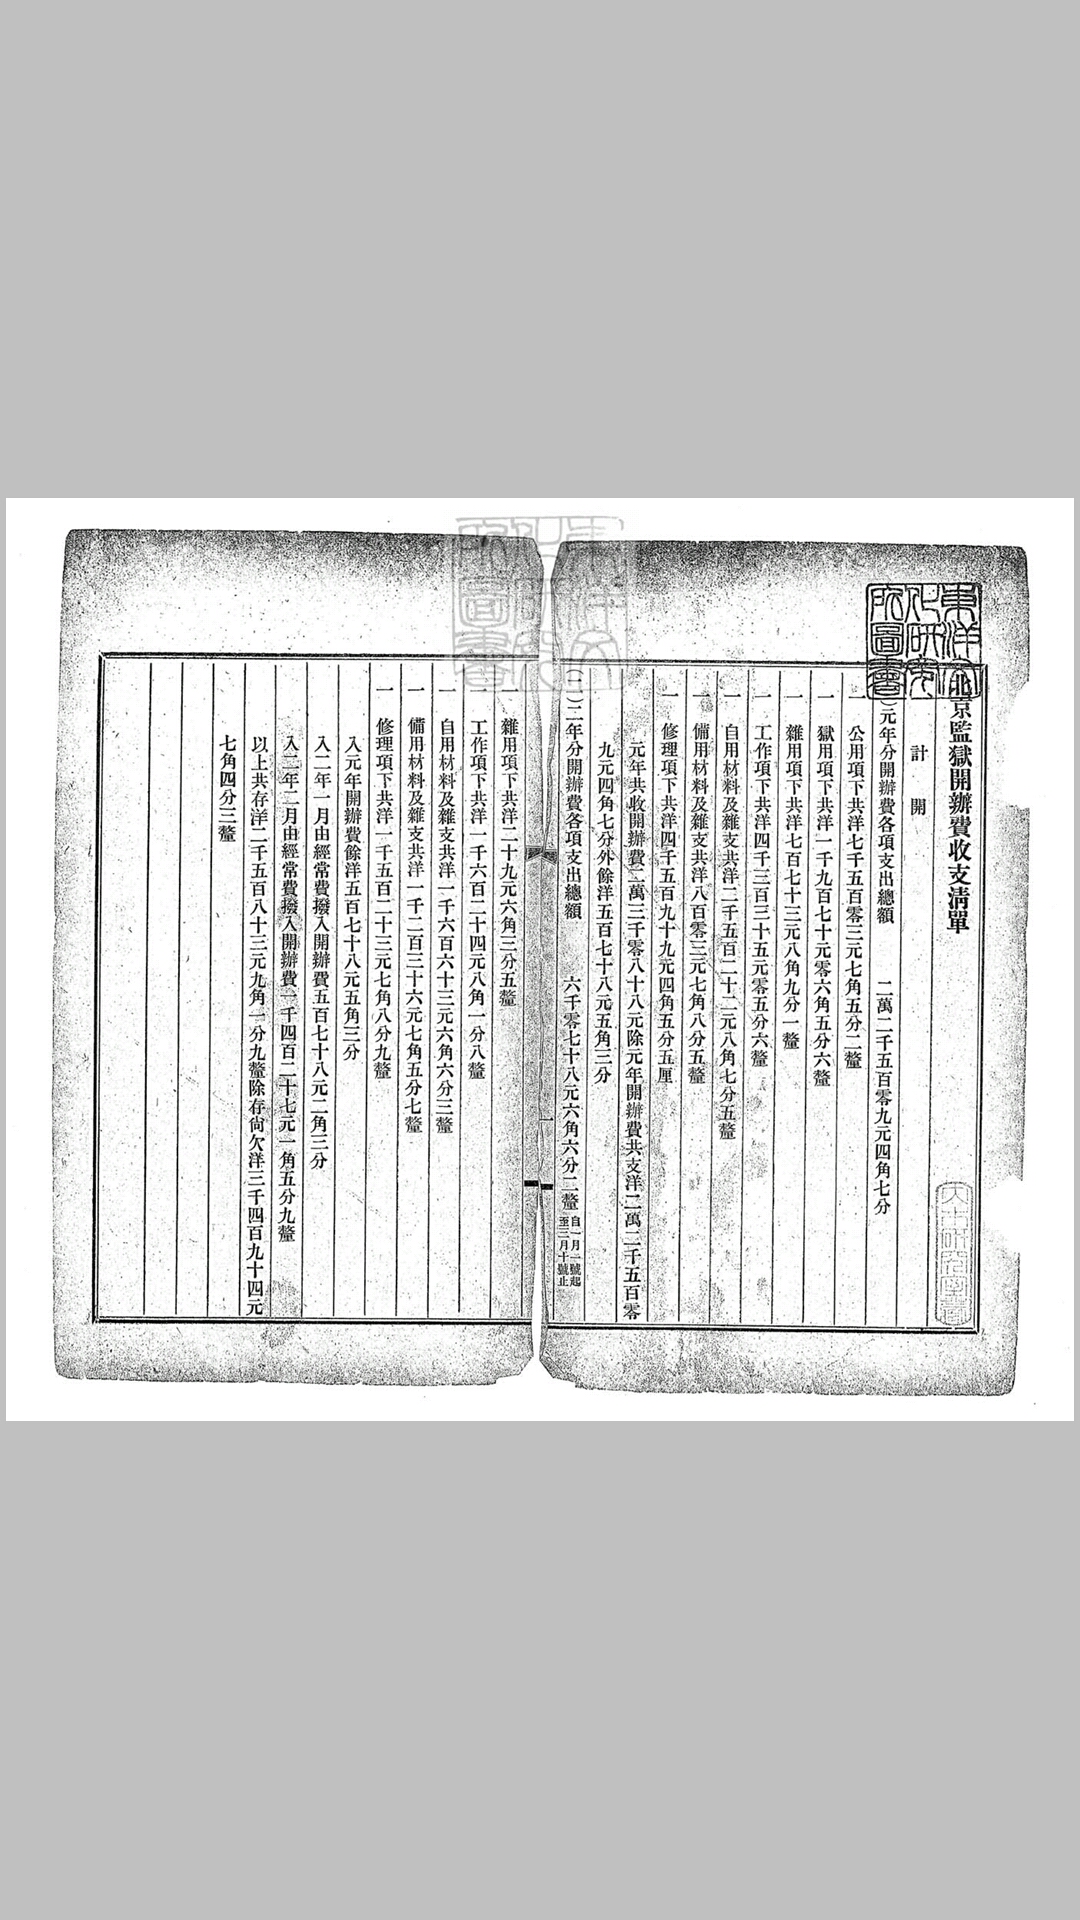 北京監獄開辦費收支清單
計開
元年分開辦費各項支出總額 二萬二千五百零九元四角七分
一 公用項下共洋七千五百零三元七角五分二釐
一 獄用項下共洋一千九百七十元零六角五分六釐
一 雜用項下共洋七百七十三元八角九分一釐
一 工作項下共洋四千三百三十五元零五分六釐
一 自用材料及雜支共洋二千五百二十二元八角七分五釐
一 備用材料及雜支共洋八百零三元七角八分五釐
一 修理項下共洋四千五百九十九元四角五分五厘
元年共收開辦費二萬三千零八十八元除元年開辦費共支洋二萬二千五百零
九元四角七分外餘洋五百七十八元五角三分
(二)二年分開辦費各項支出總額 六千零七十八元六角六分二釐 自一月一號起至三月十號止
一
一 雜用項下共洋二十九元六角三分五釐
一 工作項下共洋一千六百二十四元八角一分八釐
一 自用材料及雜支共洋一千六百六十三元六角六分三釐
一 備用材料及雜支共洋一千二百三十六元七角五分七釐
一 修理項下共洋一千五百二十三元七角八分九釐
入元年開辦費餘洋五百七十八元五角三分
入二年一月由經常費撥入開辦費五百七十八元二角三分
入二年二月由經常費撥入開辦費一千四百二十七元一角五分九釐
以上共存洋二千五百八十三元九角一分九釐除存尙欠洋三千四百九十四元
七角四分三釐